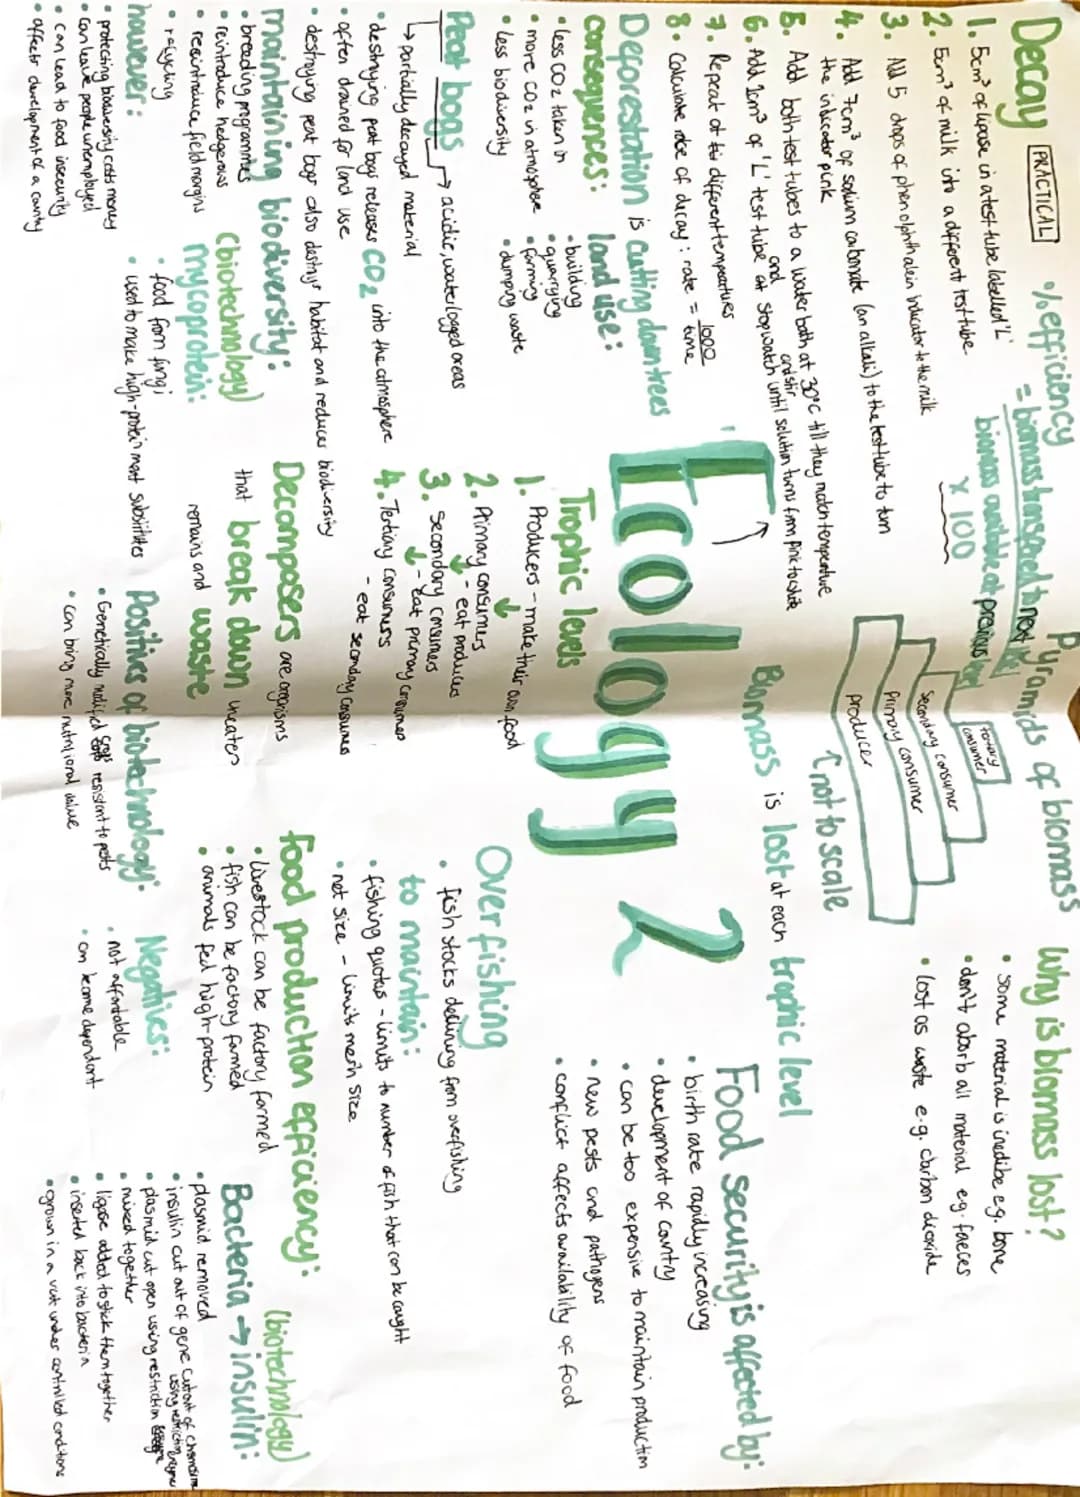 Decay PRACTICAL
1. 5cm³ of lipase in a test tube labelled 'L'
2. 5cm³ of milk into a different test tube.
3. Add 5 drops of phenolphthalein indicator to the milk
4. Add 7cm³ of sodium carbonate (an alkali) to the test tube to turn
the indicator pink
5. Add both test tubes to a water bath at 30°C till they match temperature
6. Add 1cm³ of 'L' test tube and stir and stopwatch until solution turns from pink to white
7. Repeat at different temperatures
8. Calculate rate of decay: rate = 1000
time
% efficiency
= biomass transferred to next level
biomass available at previous level
x 100
Pyramids of biomass
tertiary consumer
secondary consumer
primary consumer
producer
↑ not to scale
Why is biomass lost?
• some material is inedible e.g. bone
• don't absorb all material eg. faeces
• lost as waste e.g. carbon dioxide
Biomass is lost at each trophic level
Deforestation is cutting down trees
consequences:
• less CO2 taken in
• more CO2 in atmosphere
• less biodiversity
land use:
• building
• quarrying
• farming
• dumping waste
Ecology 2
Food security is affected by:
• birth rate rapidly increasing
• development of country
• can be too expensive to maintain production
• new pests and pathogens
• conflict affects availability of food
Peat bogs → acidic, waterlogged areas
→ partially decayed material
• destroying peat bogs releases CO2 into the atmosphere
• often drained for land use
• destroying peat bogs also destroys habitat and reduces biodiversity
Trophic levels
1. Producers - make their own food
2. Primary consumers
- eat producers
3. Secondary consumers
- eat primary consumers
4. Tertiary consumers
- eat secondary consumers
Overfishing
• fish stocks declining from overfishing
to maintain:
• fishing quotas - limits to number of fish that can be caught
• net size - limits mesh size
maintaining biodiversity:
• breeding programmes
• reintroduce hedgerows
• reintroduce field margins
• recycling
however:
• protecting biodiversity costs money
• can leave people unemployed
• can lead to food insecurity
• affects development of a country
(biotechnology)
mycoprotein:
• food from fungi
• used to make high-protein meat substitutes
Decomposers are organisms
that break down uneaten
remains and waste
food production efficiency:
• livestock can be factory farmed
• fish can be factory farmed
• animals fed high-protein
Positives of biotechnology:
• Genetically modified crops resistant to pests
• can bring more nutritional value
Negatives:
• not affordable
• can become dependant
(biotechnology)
Bacteria → insulin:
• plasmid removed
• insulin cut out of gene cut out of chromosome using restriction enzyme
• plasmid cut open using restriction
• mixed together
• ligase added to stick them together
• inserted back into bacteria
• grown in a vat under controlled conditions